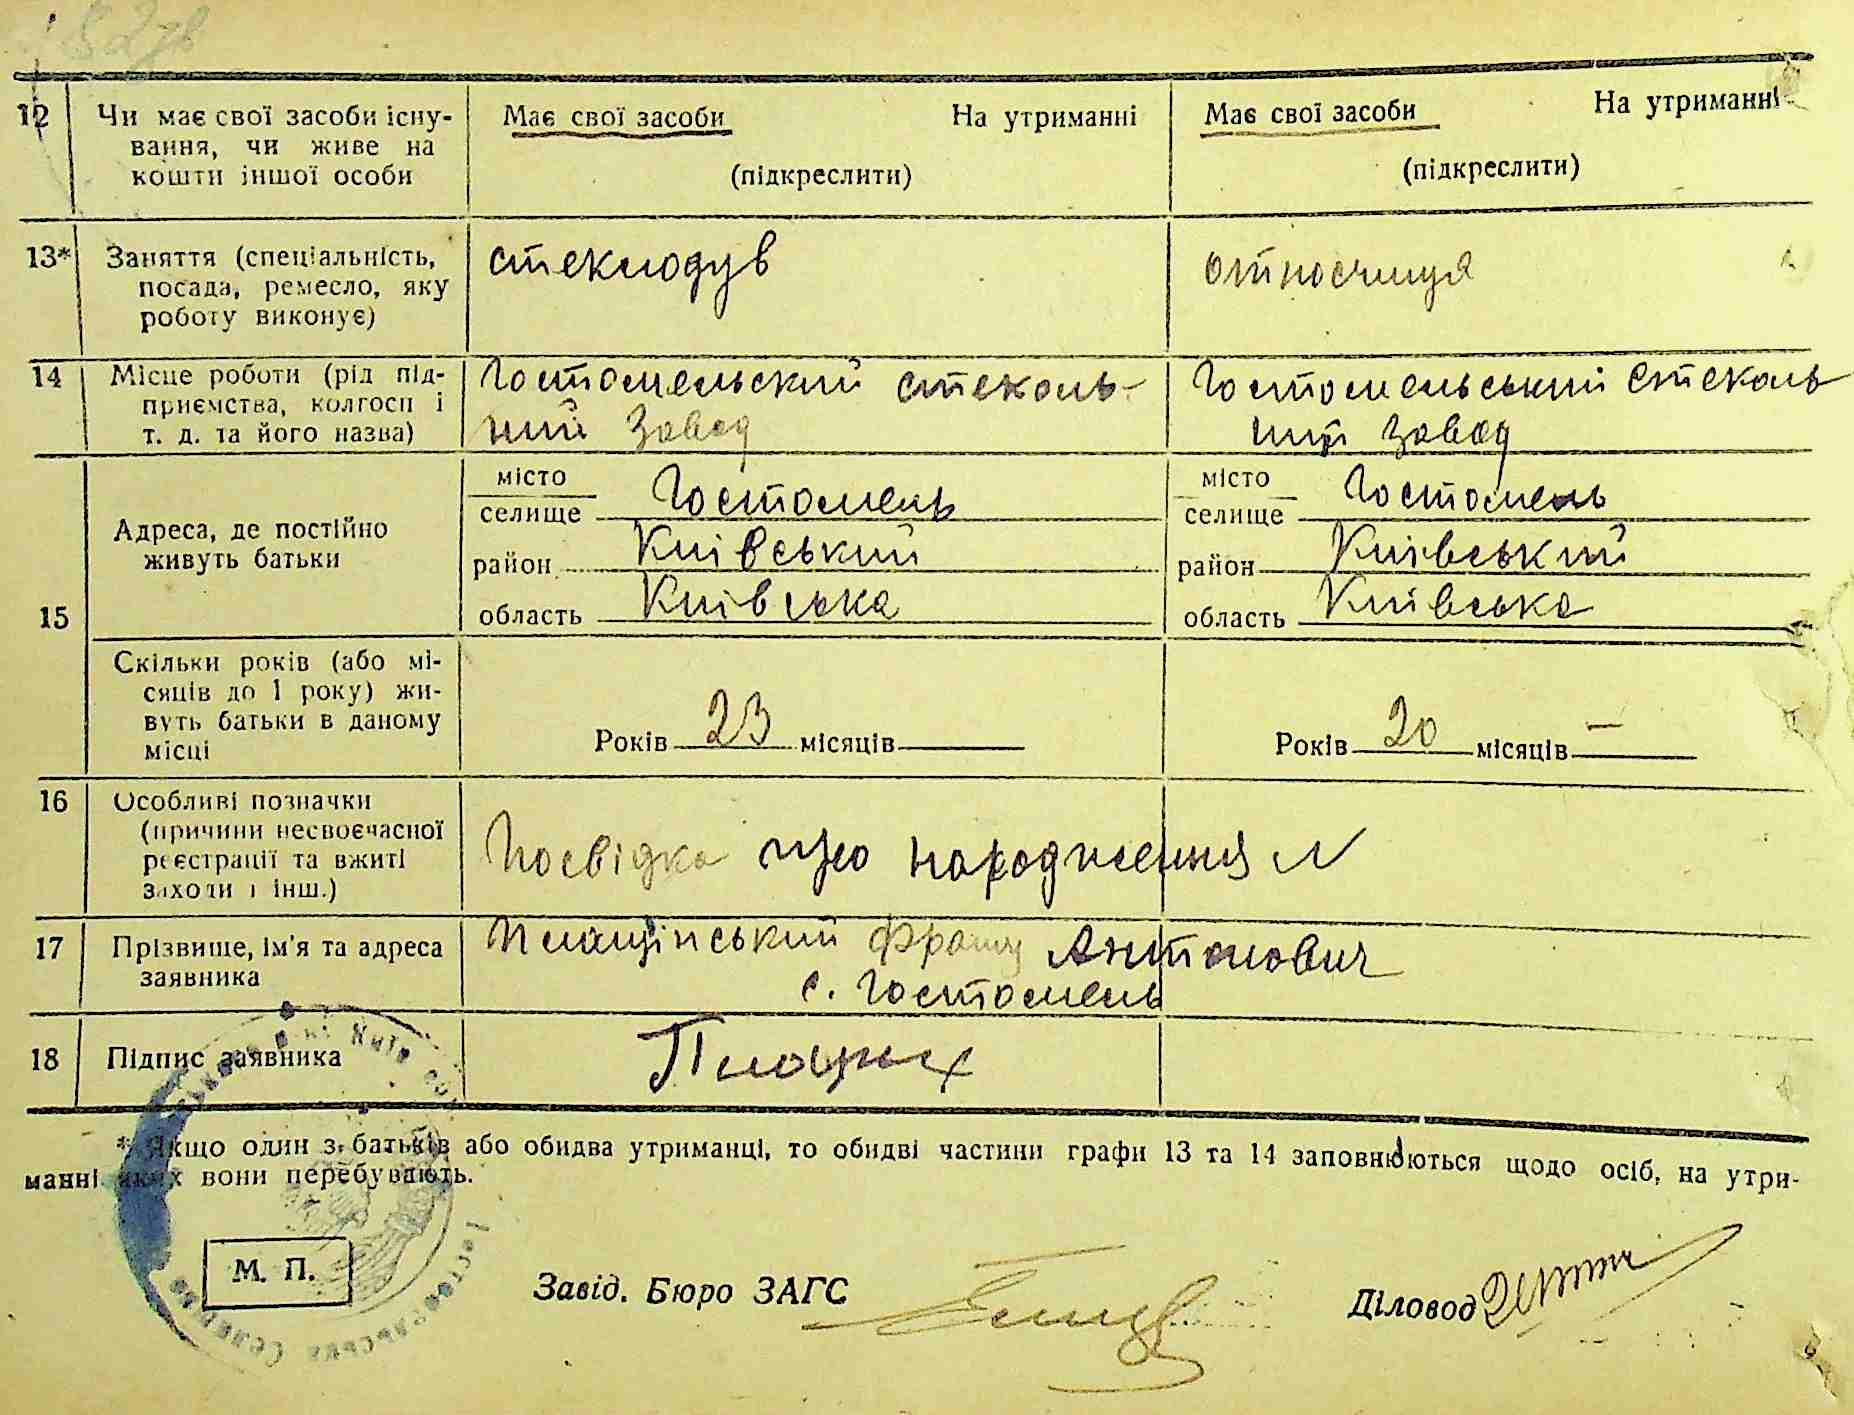 12 Чи має свої засоби існу- Має свої засоби На утриманні Має свої засоби На утриманні
вання, чи живе на
кошти іншої особи (підкреслити) (підкреслити)
13* Заняття (спеціальність, стеклодув относчиця
посада, ремесло, яку
роботу виконує)
14 Місце роботи (рід під- Гостомельский стеколь- Гостомельський стеколь
приємства, колгосп і ний завод ний завод
т. д. та його назва)
15 Адреса, де постійно місто Гостомель місто Гостомель
живуть батьки селище селище
район Київський район Київський
область Київська область Київська
Скільки років (або мі-
сяців до 1 року) жи-
вуть батьки в даному Років 23 місяців Років 20 місяців —
місці
16 Особливі позначки
(причини несвоєчасної
реєстрації та вжиті Посвідка про народження N
заходи і інш.)
17 Прізвище, ім'я та адреса Антонович
заявника с. Гостомель
18 Підпис заявника
* Якщо один з батьків або обидва утриманці, то обидві частини графи 13 та 14 заповнюються щодо осіб, на утри-
манні яких вони перебувають.
М. П. Завід. Бюро ЗАГС Діловод